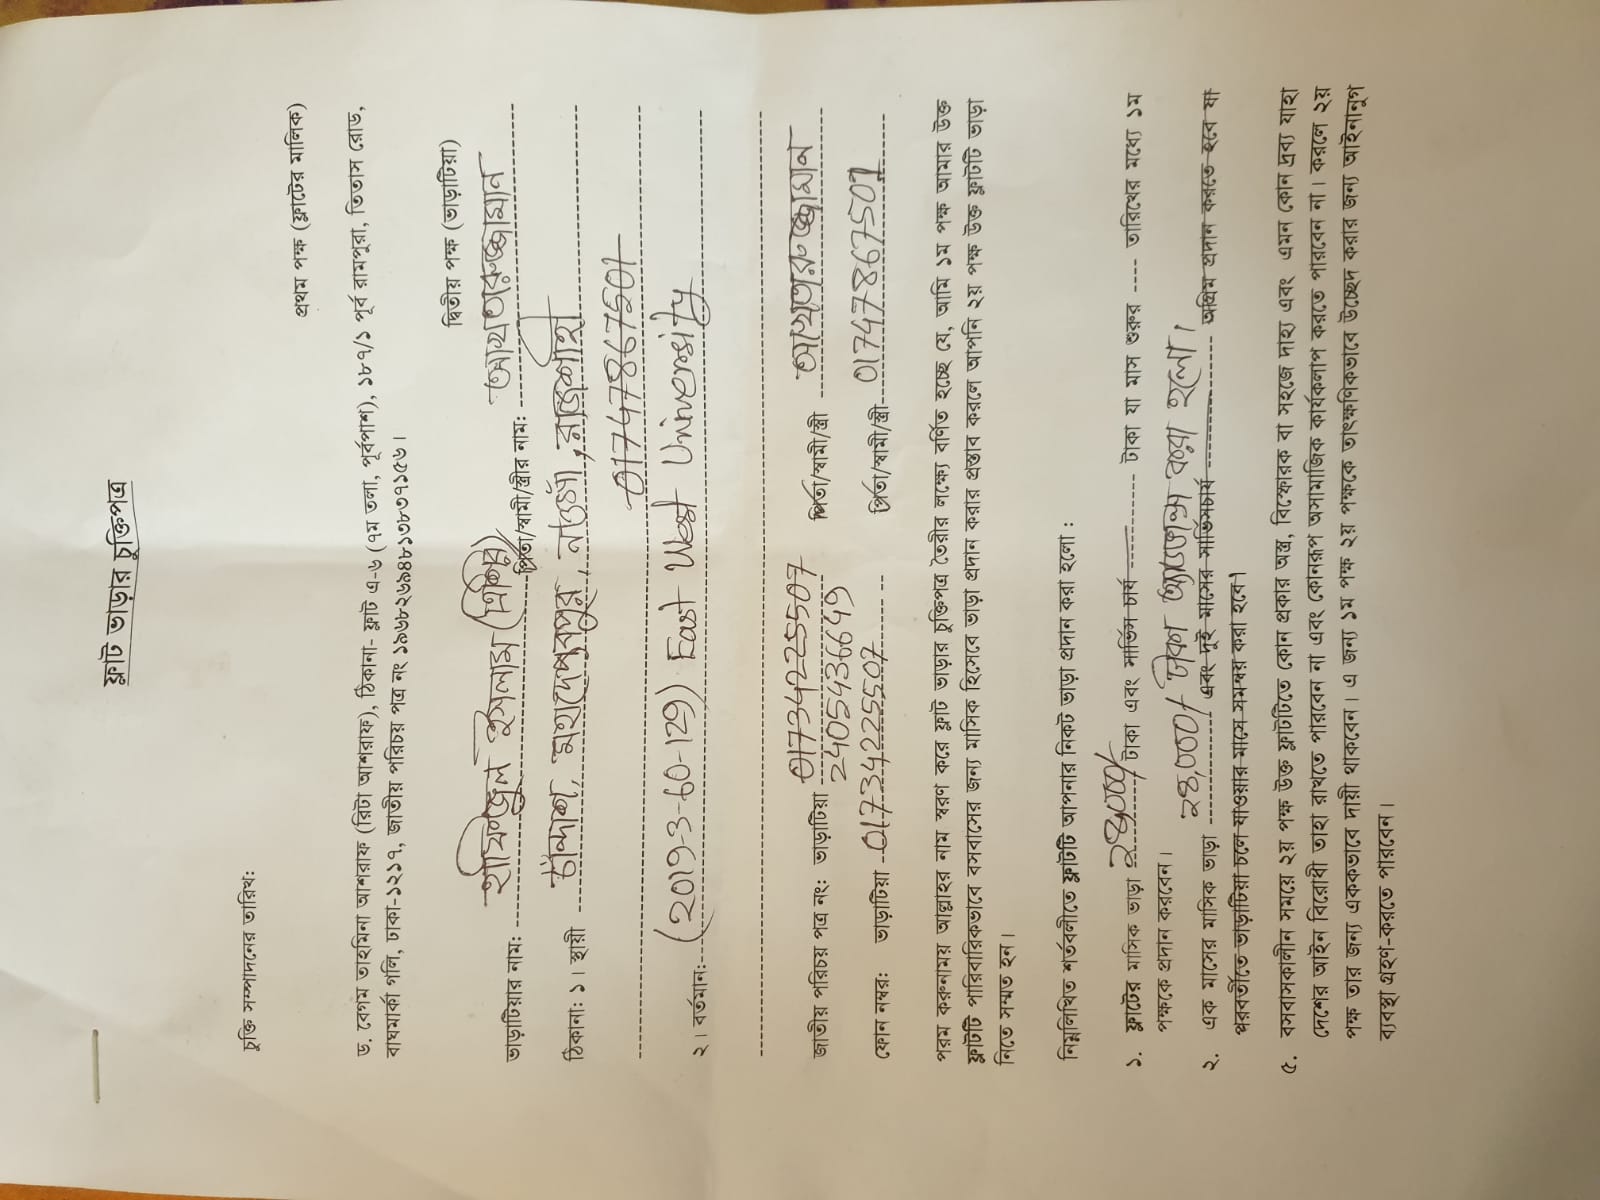 ফ্লাট ভাড়ার চুক্তিপত্র
চুক্তি সম্পাদনের তারিখঃ
প্রথম পক্ষ (ফ্লাটের মালিক)
ড. বেগম তাহমিনা আশরাফ (রিটা আশরাফ), ঠিকানা- ফ্লাট এ-৬ (৭ম তলা, পূর্বপাশ), ১৮৭/১ পূর্ব রামপুরা, তিতাস রোড,
বাঘমার্কা গলি, ঢাকা-১২১৭, জাতীয় পরিচয় পত্র নং ১৯৬৮২৬৯৪৮১৩৮৩৭১৫৬।
দ্বিতীয় পক্ষ (ভাড়াটিয়া)
ভাড়াটিয়ার নাম: ইসলাম পিতা/স্বামী/স্ত্রীর নাম: আখতারুজ্জামান
ঠিকানা: ১। স্থায়ী চাঁন্দাশ, নওগাঁ, রাজশাহী
01747867501
২। বর্তমান: (2019-3-60-129) East West University
01734225507
জাতীয় পরিচয় পত্র নং: ভাড়াটিয়া 2405436649 পিতা/স্বামী/স্ত্রী আখতারুজ্জামান
ফোন নম্বর: ভাড়াটিয়া 01734225507 পিতা/স্বামী/স্ত্রী 01747867501
পরম করুনাময় আল্লাহর নাম স্বরণ করে ফ্লাট ভাড়ার চুক্তিপত্র তৈরীর লক্ষ্যে বর্ণিত হচ্ছে যে, আমি ১ম পক্ষ আমার উক্ত
ফ্লাটটি পারিবারিকভাবে বসবাসের জন্য মাসিক হিসেবে ভাড়া প্রদান করার প্রস্তাব করলে আপনি ২য় পক্ষ উক্ত ফ্লাটটি ভাড়া
নিতে সম্মত হন।
নিম্নলিখিত শর্তবলীতে ফ্লাটটি আপনার নিকট ভাড়া প্রদান করা হলো :
১. ফ্লাটের মাসিক ভাড়া ২৪,০০০/- টাকা এবং সার্ভিস চার্য টাকা যা মাস শুরুর ---- তারিখের মধ্যে ১ম
পক্ষকে প্রদান করবেন।
২৪,০০০/- টাকা অ্যাডভান্স করা হলো।
২. এক মাসের মাসিক ভাড়া এবং দুই মাসের সার্ভিসচার্য অগ্রিম প্রদান করতে হবে যা
পরবর্তীতে ভাড়াটিয়া চলে যাওয়ার মাসে সমন্বয় করা হবে।
৫. বসবাসকালীন সময়ে ২য় পক্ষ উক্ত ফ্লাটটিতে কোন প্রকার অস্ত্র, বিস্ফোরক বা সহজে দাহ্য এবং এমন কোন দ্রব্য যাহা
দেশের আইন বিরোধী তাহা রাখতে পারবেন না এবং কোনরূপ অসামাজিক কার্যকলাপ করতে পারবেন না। করলে ২য়
পক্ষ তার জন্য এককভাবে দায়ী থাকবেন। এ জন্য ১ম পক্ষ ২য় পক্ষকে তাৎক্ষণিকভাবে উচ্ছেদ করার জন্য আইনানুগ
ব্যবস্থা গ্রহণ-করতে পারবেন।